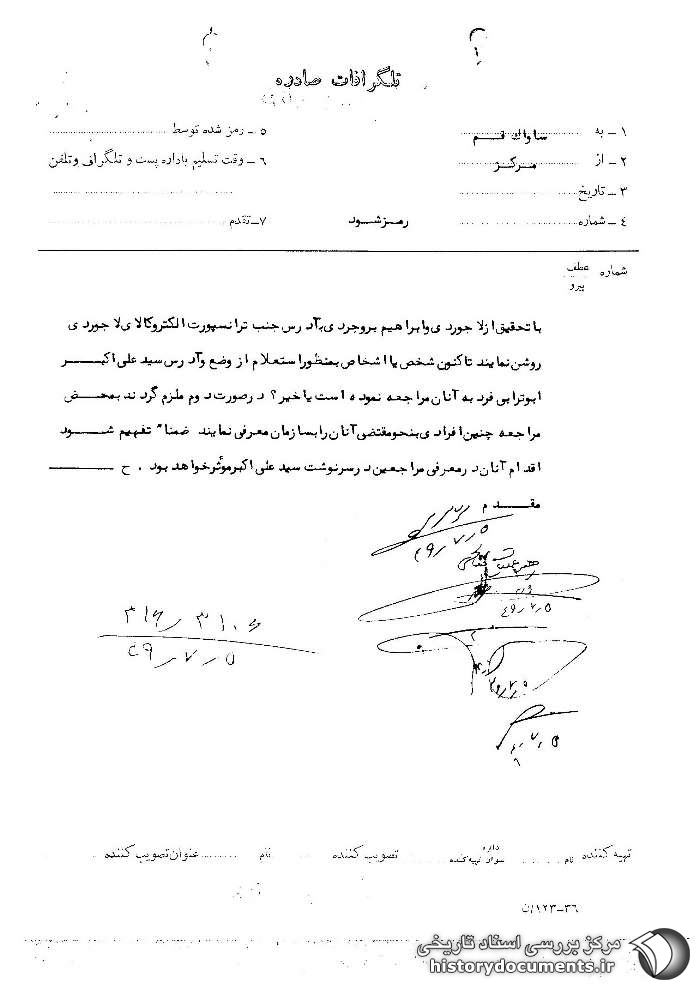 تلگرافات صادره
۱ـ به ساواك قم
۲ـ از مركز
۳ـ تاریخ
۴ـ شماره رمز شود
۵ـ رمز شده توسط
۶ـ وقت تسلیم باداره پست و تلگرافی وتلفن
۷ـ تقدم
شماره عطف
پیرو
با تحقیق از لاجوردی وابراهیم بروجردی بآدرس جنب ترانسپورت الکتروکالای لاجوردی
روشن نمایند تاکنون شخص یا اشخاص بمنظور استعلام از وضع وآدرس سید علی اکبر
ابوترابی فرد به آنان مراجعه نموده است یا خیر؟ درصورت دوم ملزم گردند بمحض
مراجعه چنین افرادی بنحومقتضی آنان را بسازمان معرفی نمایند ضمنا" تفهیم شود
اقدام آنان در معرفی مراجعین در سرنوشت سید علی اکبر موثرخواهد بود . ح
مقدم
۴۹/۷/۵
۴۹/۷/۵
۳۱۶/۳۱۰۶
۴۹/۷/۵
تهیه کننده نام
تصویب کننده نام عنوان تصویب کننده
۳۶-۱۲۳/ن
مرکز بررسی اسناد تاریخی
historydocuments.ir